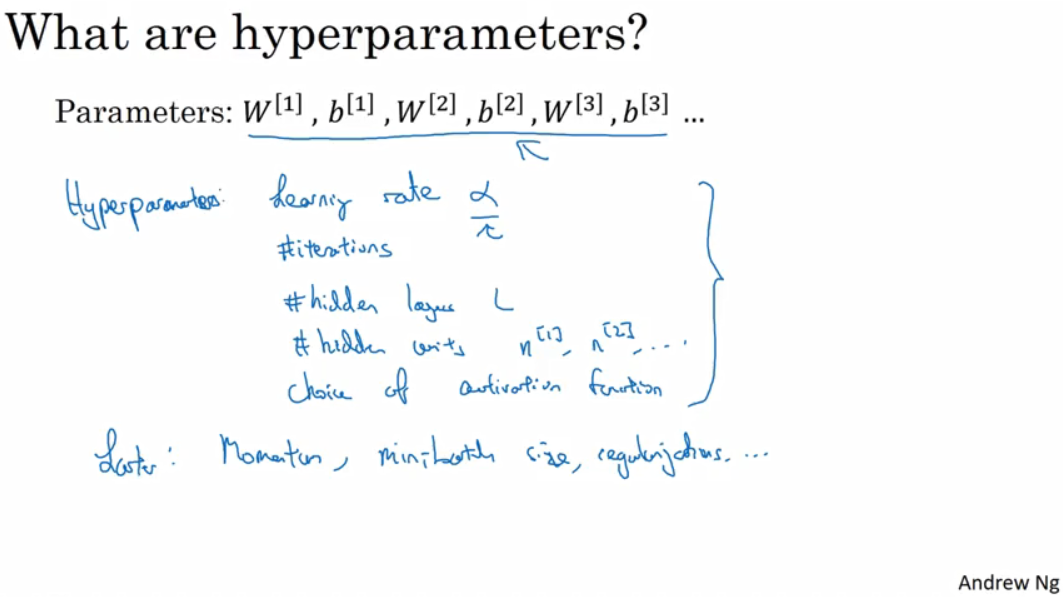 What are hyperparameters?
Parameters: W^[1], b^[1], W^[2], b^[2], W^[3], b^[3] ...
Hyperparameters: Learning rate α
#iterations
#hidden layers L
#hidden units n^[1], n^[2], ....
Choice of activation function
Later: Momentum, mini-batch size, regularizations, ...
Andrew Ng